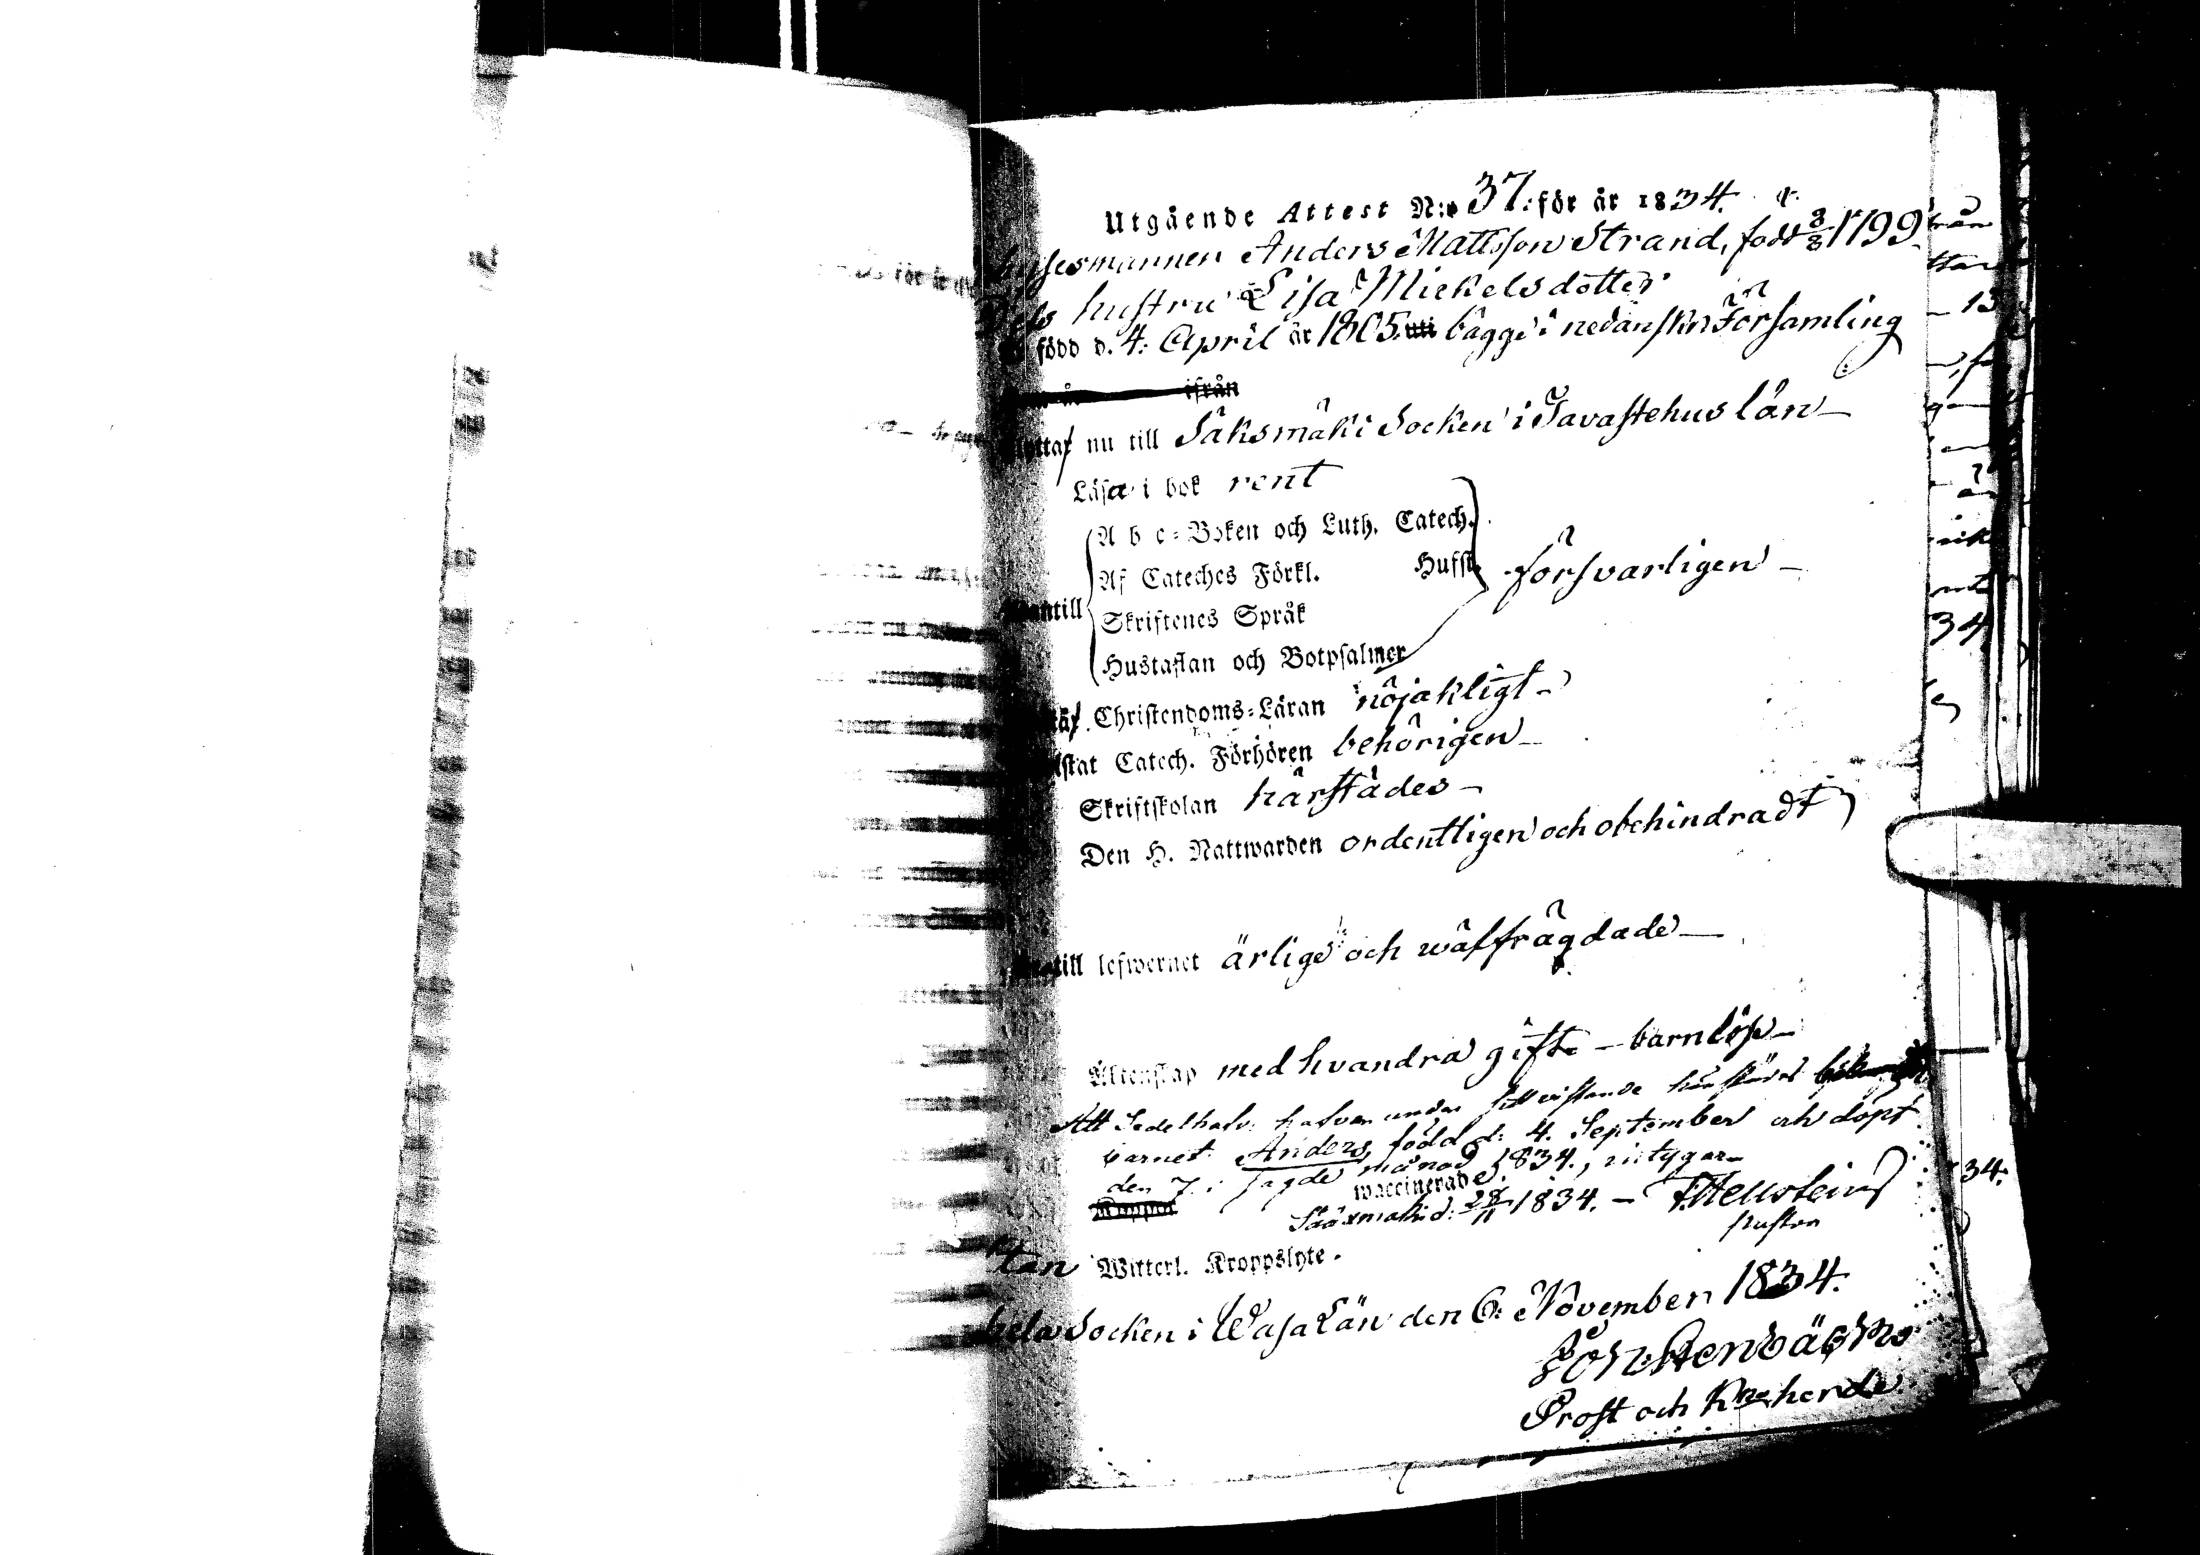 Utgående Attest N:o 37. för år 1834.
Anders Mattsson Strand, född 3/8 1799
hustru Lisa Mickelsdotter
född d. 4: April år 1805. uti bägge i nedanskn Församling
ifrån
nu till Säksmäki Socken i Tavastehus län
Läsa i bok rent
A b c-Boken och Luth. Catech.
Af Cateches Förkl. Hufst.
försvarligen
Skriftenes Språk
Hustaflan och Botpsalmer
Christendoms-Läran nöjaktigt
Catech. Förhören behörigen
Skriftskolan härstädes
Den H. Nattwarden ordentligen och obehindradt
till lefwernet ärlige och wälfrägdade
Äktenskap med hvandra gifte - barnlöse
Att Sedelhafv: hafva under härstädes
barnet Anders, född d: 4. September och döpt
den 7. i sagde månad 1834., intygar
Koppor waccinerade.
Sääxmäki d: 28/11 1834. -
utan Witterl. Kroppslyte.
Socken i Wasa Län den 6: November 1834.
Prost och Kyrkoherde